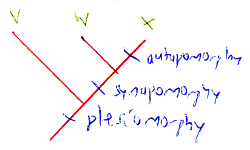 V W X
autapomorphy
synapomorphy
plesiomorphy